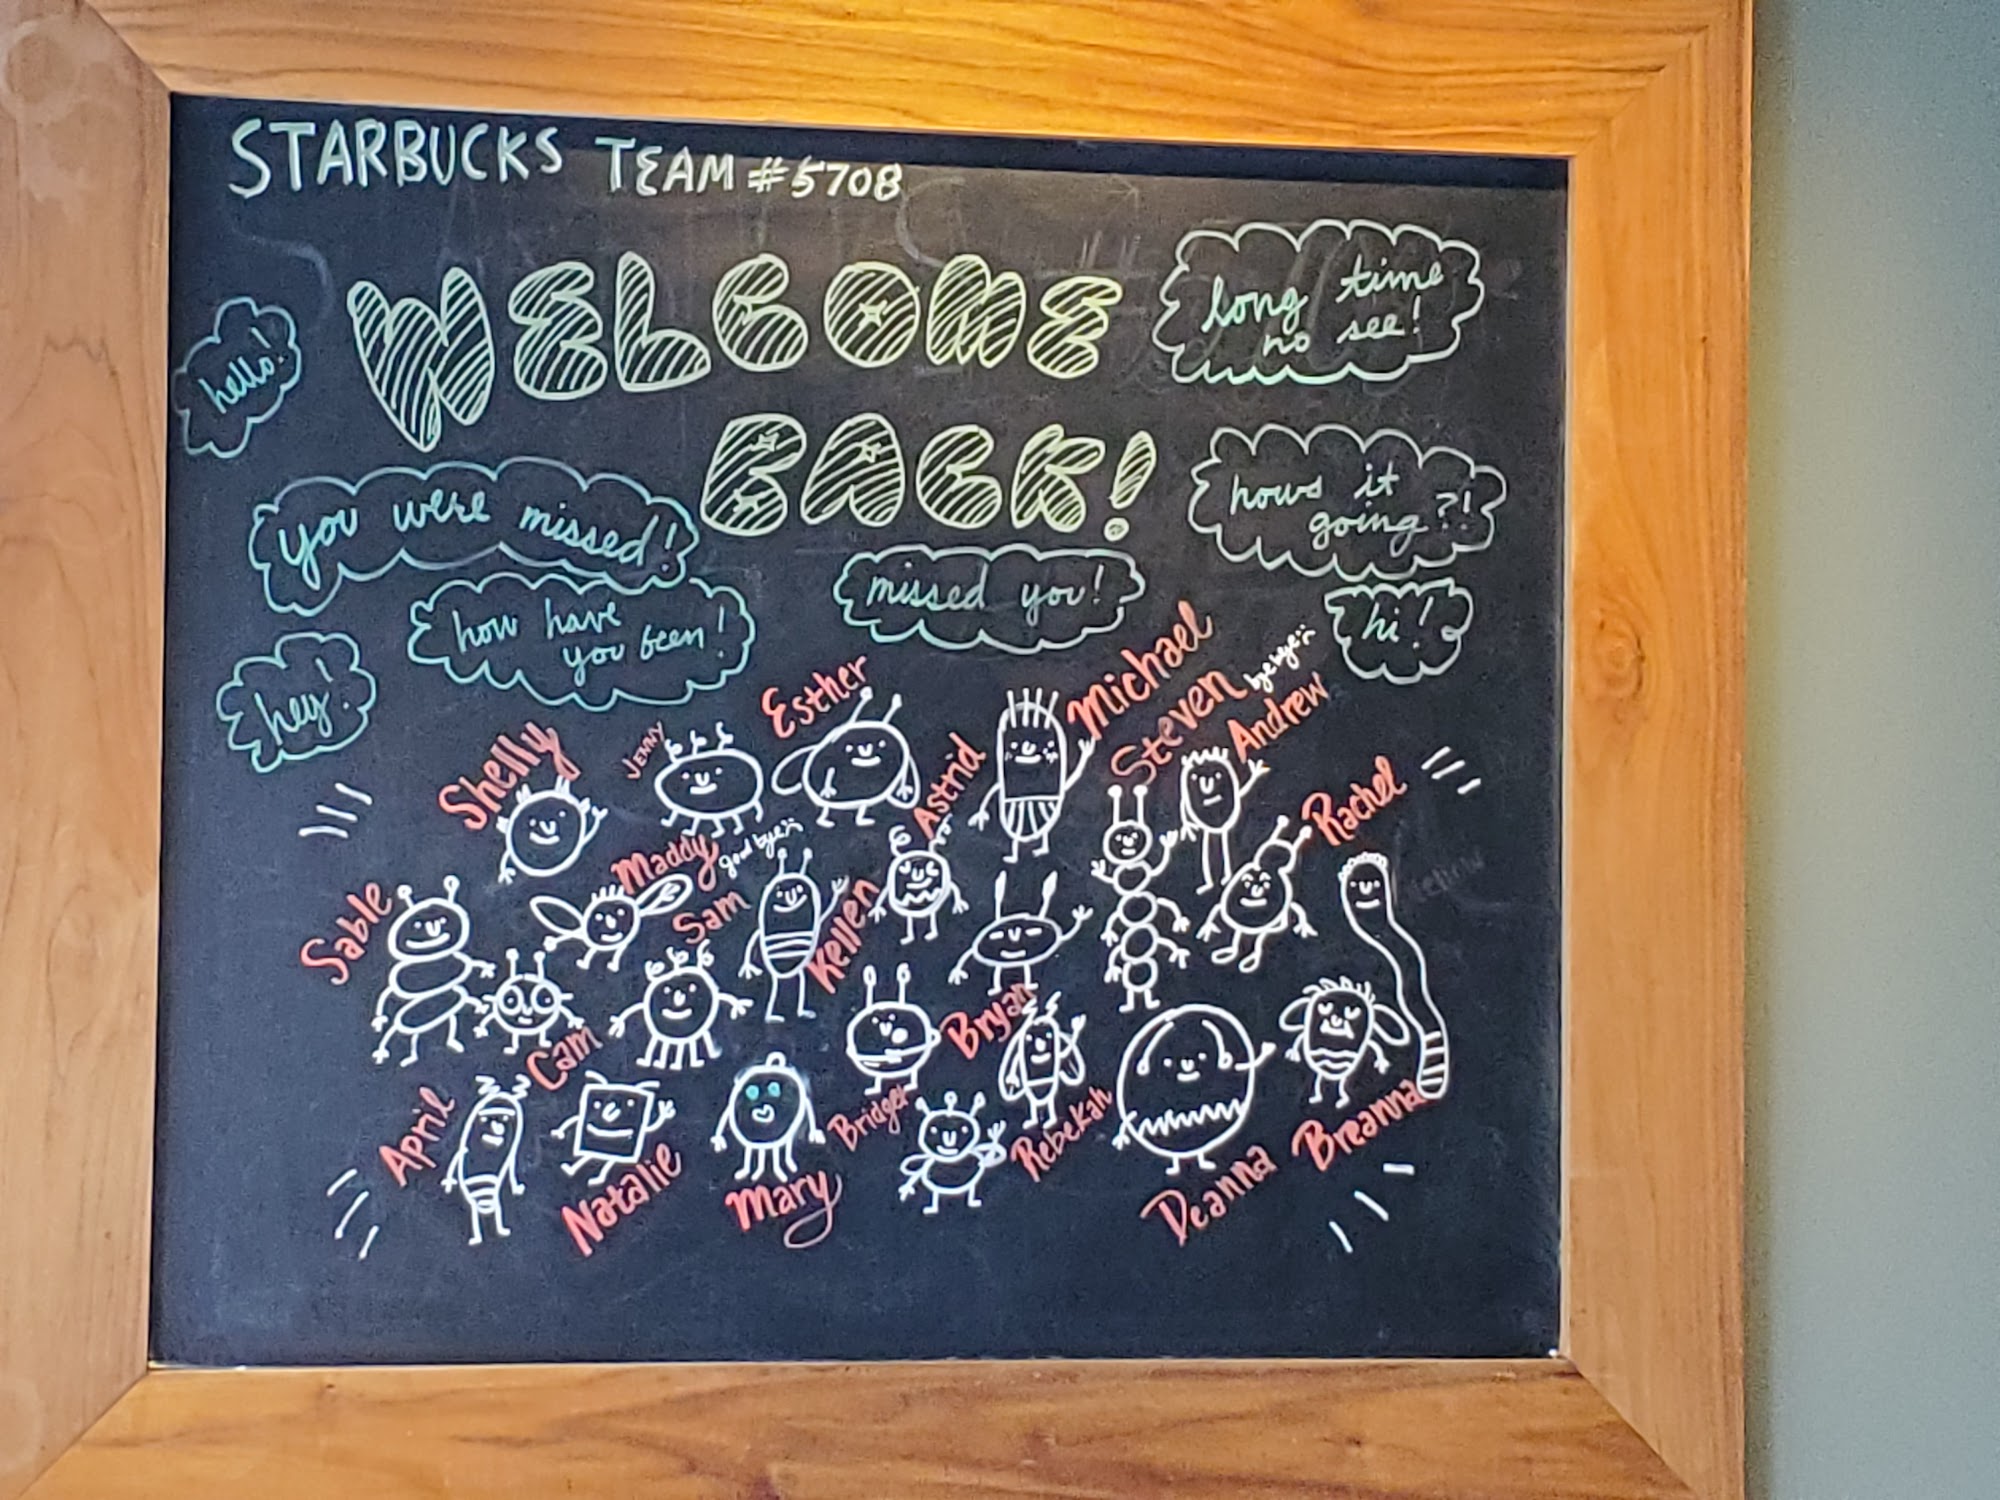 STARBUCKS TEAM #5708
WELCOME
BACK!
hello!
long time
no see!
you were missed!
hows it
going?!
how have
you been!
missed you!
hi!
hey!
Michael
Esther
Steven
bye bye :(
Andrew
Shelly
Jenny
Astrid
Rachel
Maddy
good bye :(
Sam
Sable
Kellen
Bryan
Cam
April
Bridger
Rebekah
Breanna
Natalie
Mary
Deanna